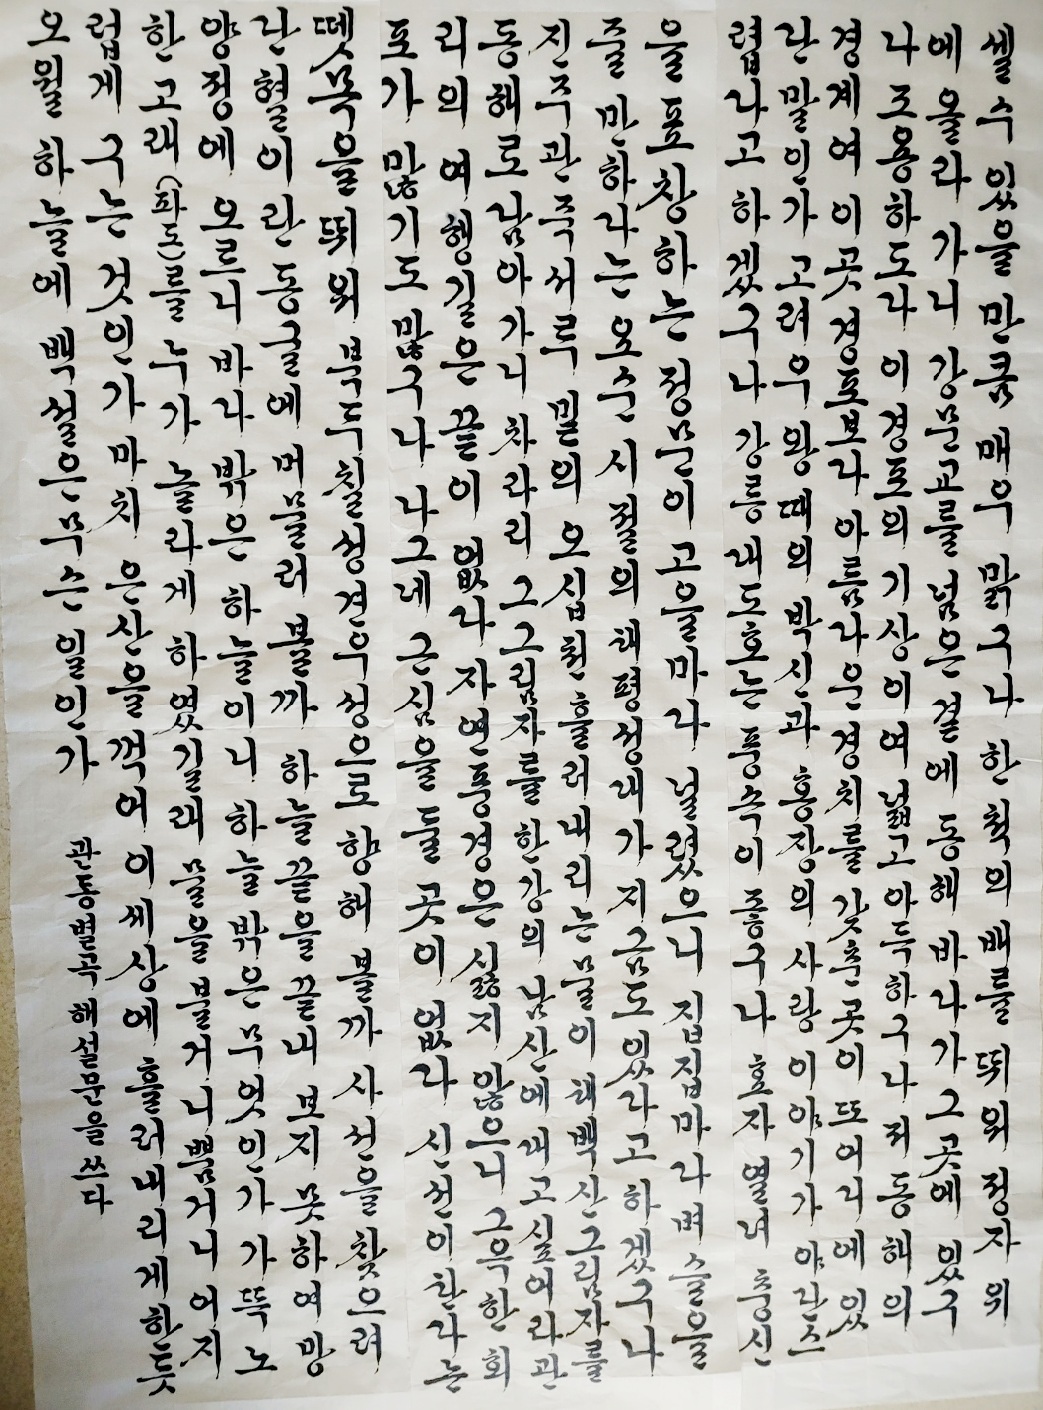 셀 수 있을 만큼 매우 맑구나 한 척의 배를 띄워 정자 위
에 올라 가니 강문교를 넘은 곁에 동해 바다가 그곳에 있구
나 조용하도다 이 경포의 기상이여 넓고 아득하구나 저 동해의
경계여 이 곳 경포보다 아름다운 경치를 갖춘 곳이 또 어디에 있
단 말인가 고려 우왕 때의 박신과 홍장의 사랑 이야기가 야단스
럽다고 하겠구나 강릉 대도호는 풍속이 좋구나 효자 열녀 충신
을 표창하는 정문이 고을마다 널렸으니 집집마다 벼슬을
줄 만하다는 요순 시절의 태평성대가 지금도 있다고 하겠구나
진주관 죽서루 밑의 오십천 흘러내리는 물이 태백산 그림자를
동해로 담아 가니 차라리 그 그림자를 한강의 남산에 대고 싶어라 관
리의 여행길은 끝이 없다 자연 풍경은 싫지 않으니 그윽한 회
포가 많기도 많구나 나그네 근심을 둘 곳이 없다 신선이 탄다는
뗏목을 띄워 북두칠성 견우성으로 향해 볼까 사선을 찾으려
단혈이란 동굴에 머물러 볼까 하늘 끝을 끝내 보지 못하여 망
양정에 오르니 바다 밖은 하늘이니 하늘 밖은 무엇인가 가뜩 노
한 고래(파도)를 누가 놀라게 하였길래 물을 불거니 뿜거니 어지
럽게 구는 것인가 마치 은산을 꺾어 이 세상에 흘러내리게 한듯
오월 하늘에 백설은 무슨 일인가
관동별곡 해설문을 쓰다